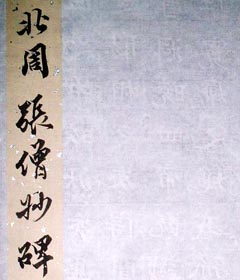 北周 張僧妙碑